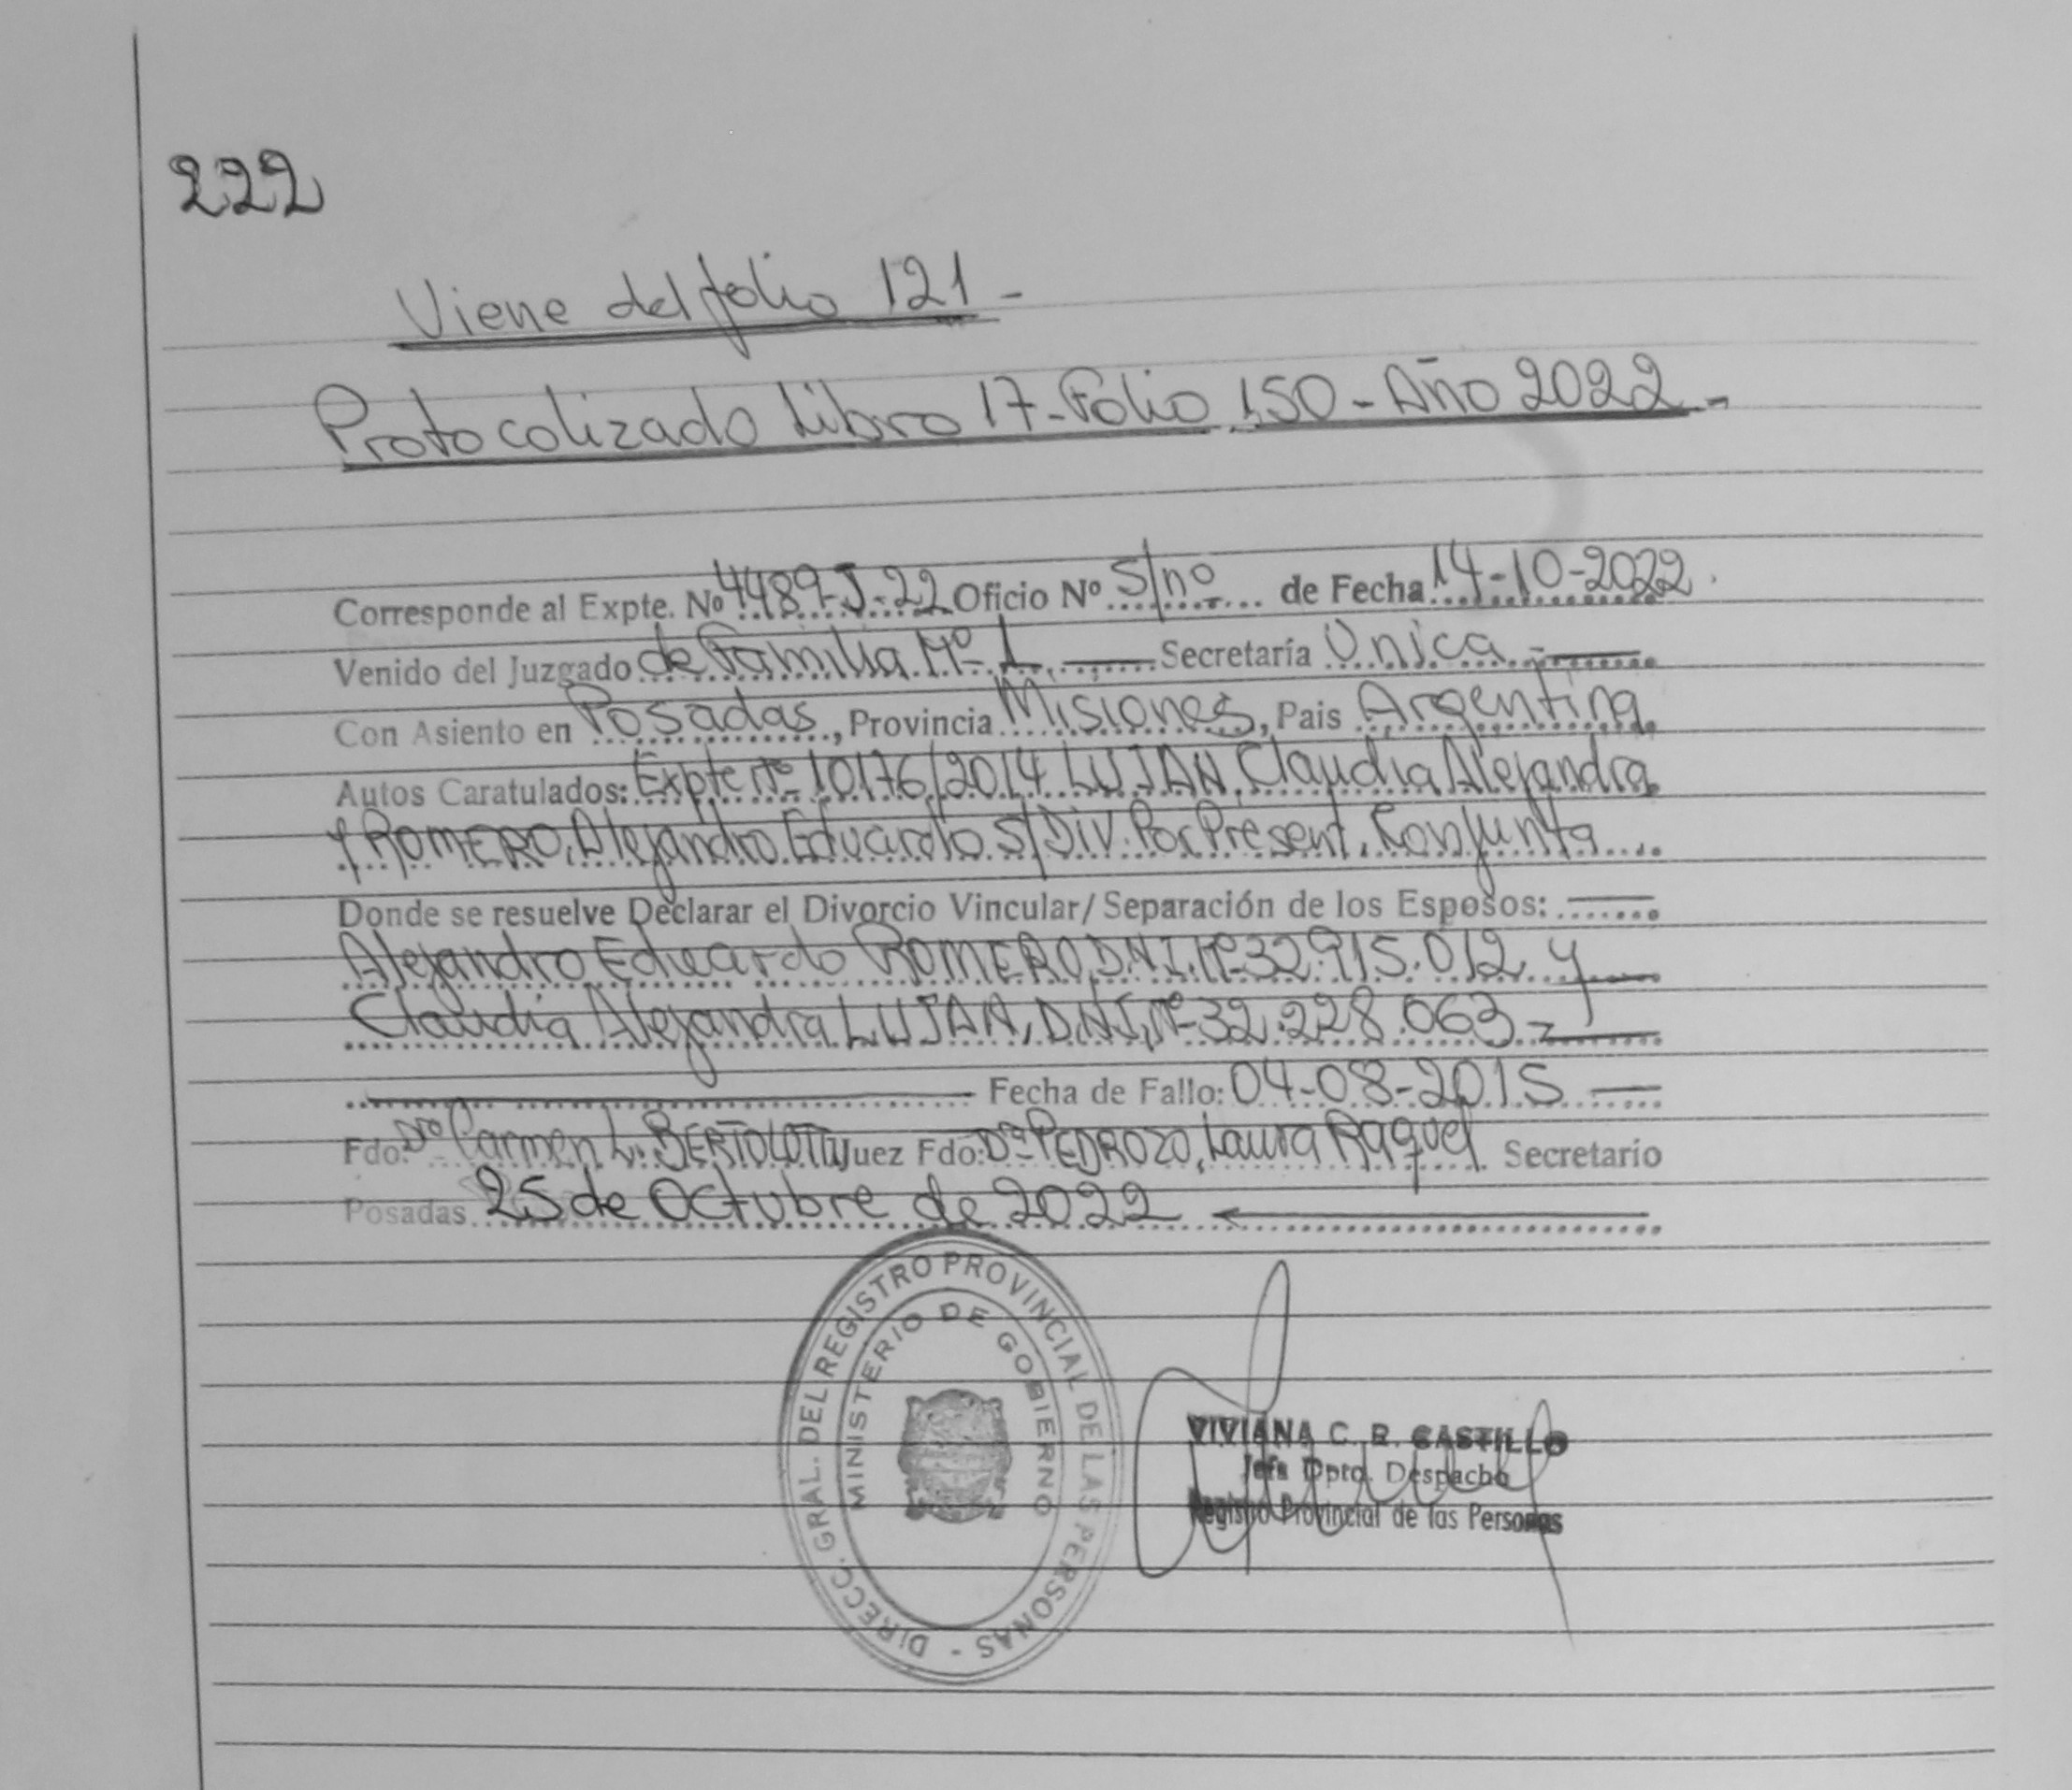 222
Viene del folio 121 -
Protocolizado Libro 17 - Folio 150 - Año 2022 -
Corresponde al Expte. Nº 4489-J-22 Oficio Nº S/nº de Fecha 14-10-2022.
Venido del Juzgado de Familia Nº 1 Secretaría Unica -
Con Asiento en Posadas, Provincia Misiones, Pais Argentina
Autos Caratulados: Expte nº 10176/2014 LUJAN, Claudia Alejandra
y ROMERO, Alejandro Eduardo S/ Div. Por Present. Conjunta
Donde se resuelve Declarar el Divorcio Vincular/ Separación de los Esposos:
Alejandro Eduardo ROMERO, D.N.I. Nº 32.915.012 y
Claudia Alejandra LUJAN, D.N.I. Nº 32.228.063 -
Fecha de Fallo: 04-08-2015
Fdo: Dra Carmen L. BERTOLOTTI Juez Fdo: Dra PEDROZO, Laura Raquel Secretario
Posadas 25 de Octubre de 2022
DIRECC. GRAL. DEL REGISTRO PROVINCIAL DE LAS PERSONAS -
MINISTERIO DE GOBIERNO
VIVIANA C. R. CASTILLO
Jefa Dpto. Despacho
Registro Provincial de las Personas